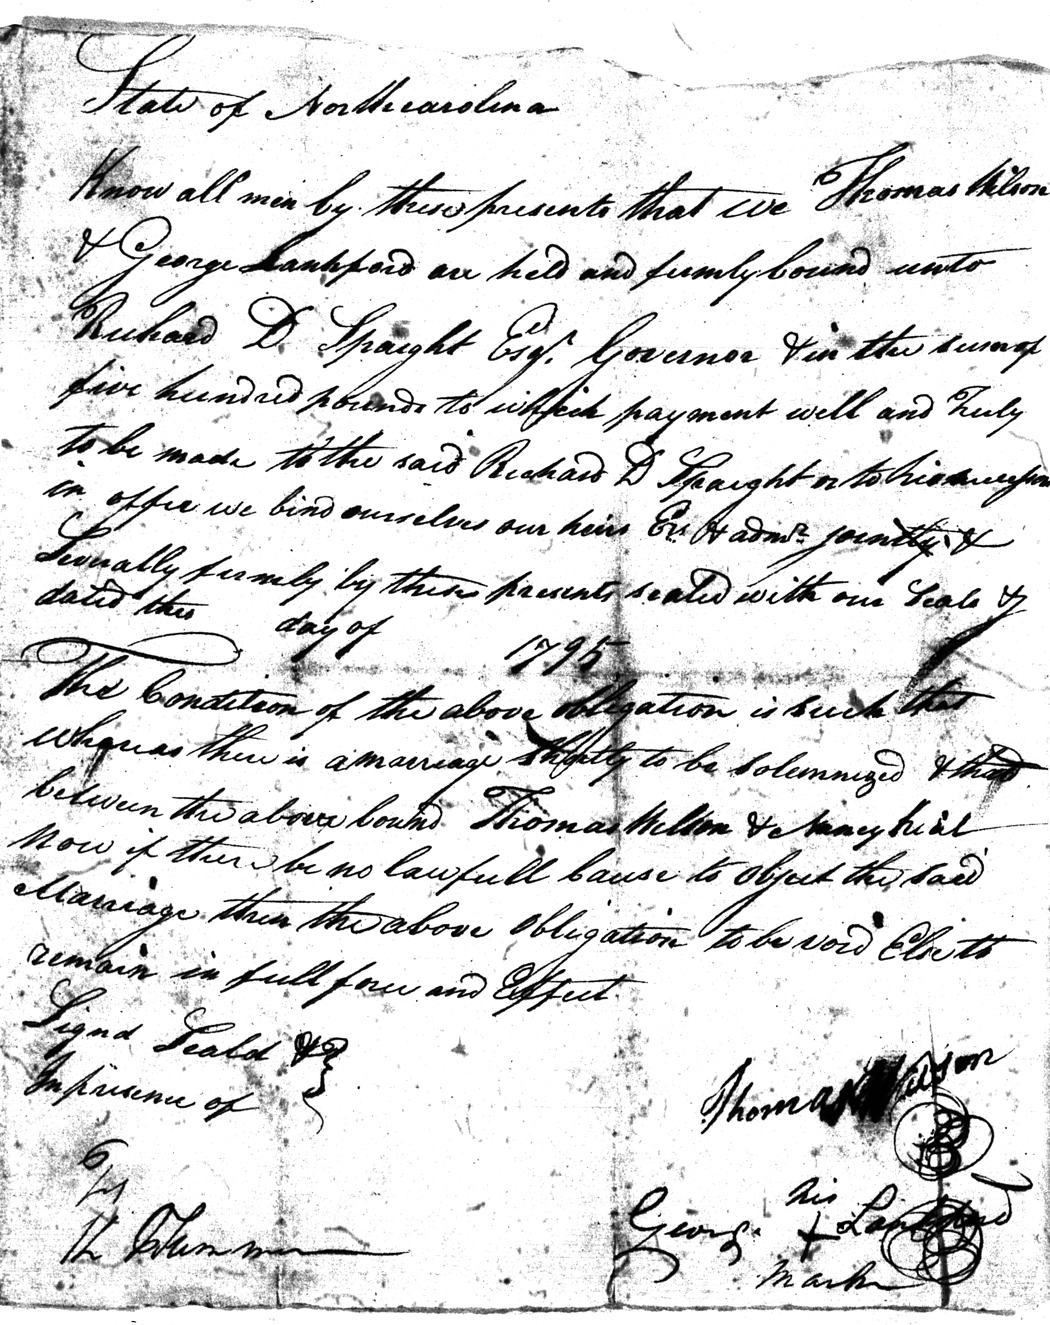 State of Northcarolina
Know all men by these presents that we Thomas Wilson
& George Lankford are held and firmly bound unto
Richard D Spaight Esqr. Governor & in the sum of
five hundred pounds to which payment well and Truly
to be made to the said Richard D Spaight or to his
in office we bind ourselves our heirs Exs & admrs jointly &
Severally firmly by these presents sealed with our Seals &
dated this day of 1795
The Condition of the above obligation is such that
whereas there is a marriage shortly to be solemnized & that
between the above bound Thomas Wilson & Nancy
Now if there be no lawfull Cause to object the said
Marriage then the above obligation to be void Else to
remain in full force and Effect
Signd Seald &
In presence of
Thomas Wilson
his
George + Lankford
mark